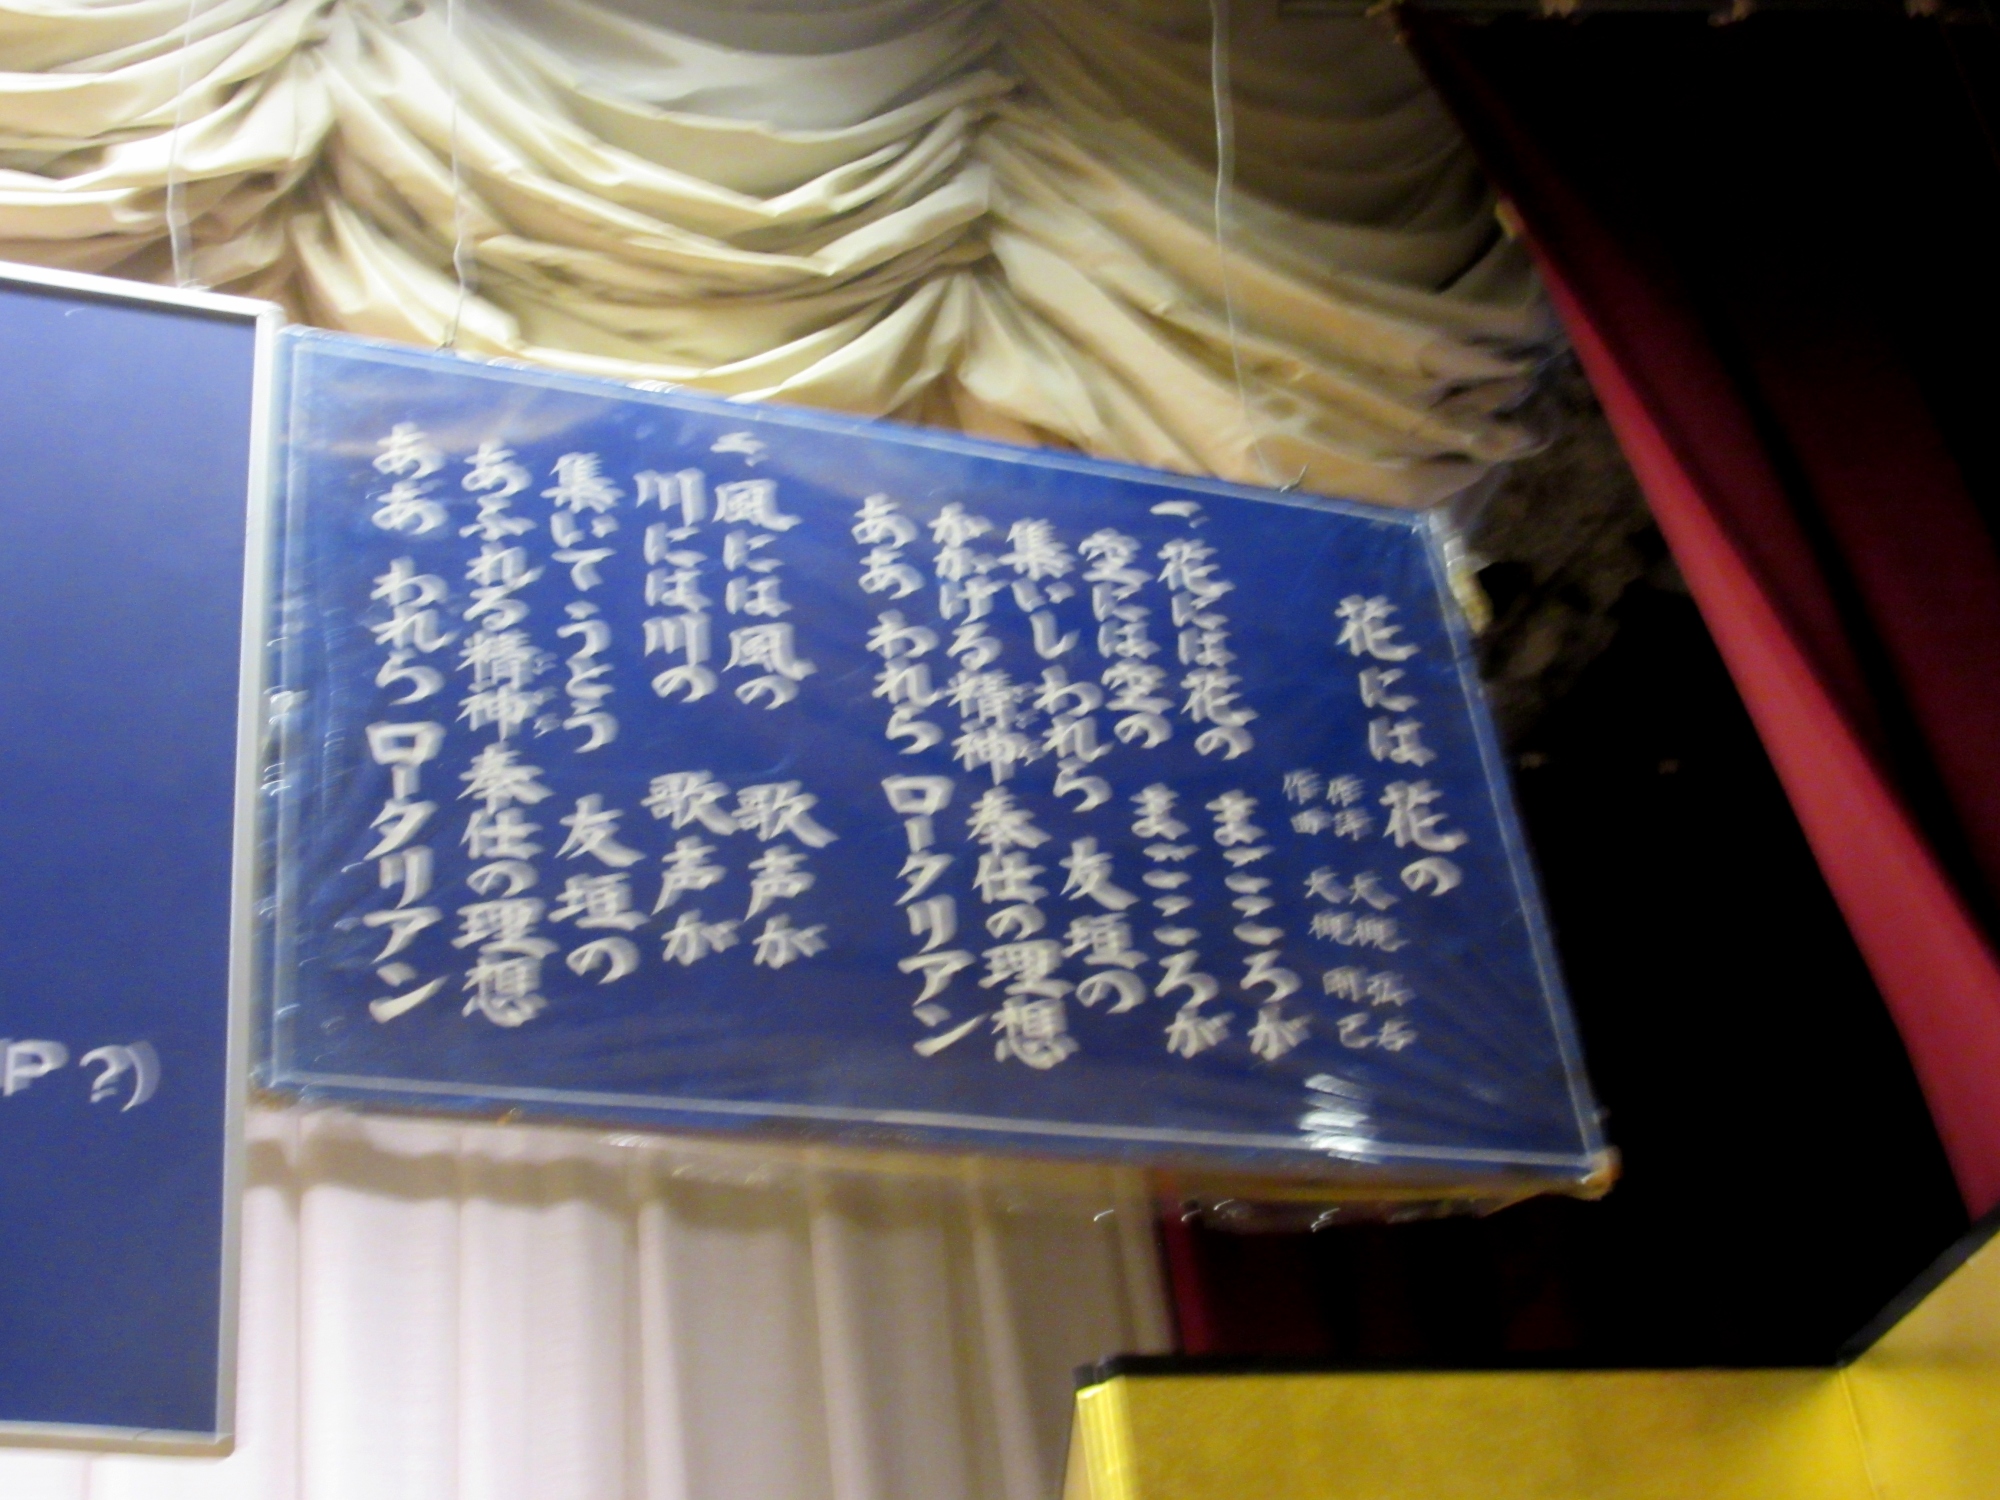 花には花の
作詩 大槻 弘
作曲 大槻 剛己
一、花には花の まごころが
空には空の まごころが
集いしわれら 友垣の
かかげる精神 奉仕の理想
ああ われら ロータリアン
二、風には風の 歌声が
川には川の 歌声が
集いてうとう 友垣の
あふれる精神 奉仕の理想
ああ われら ロータリアン
P?)